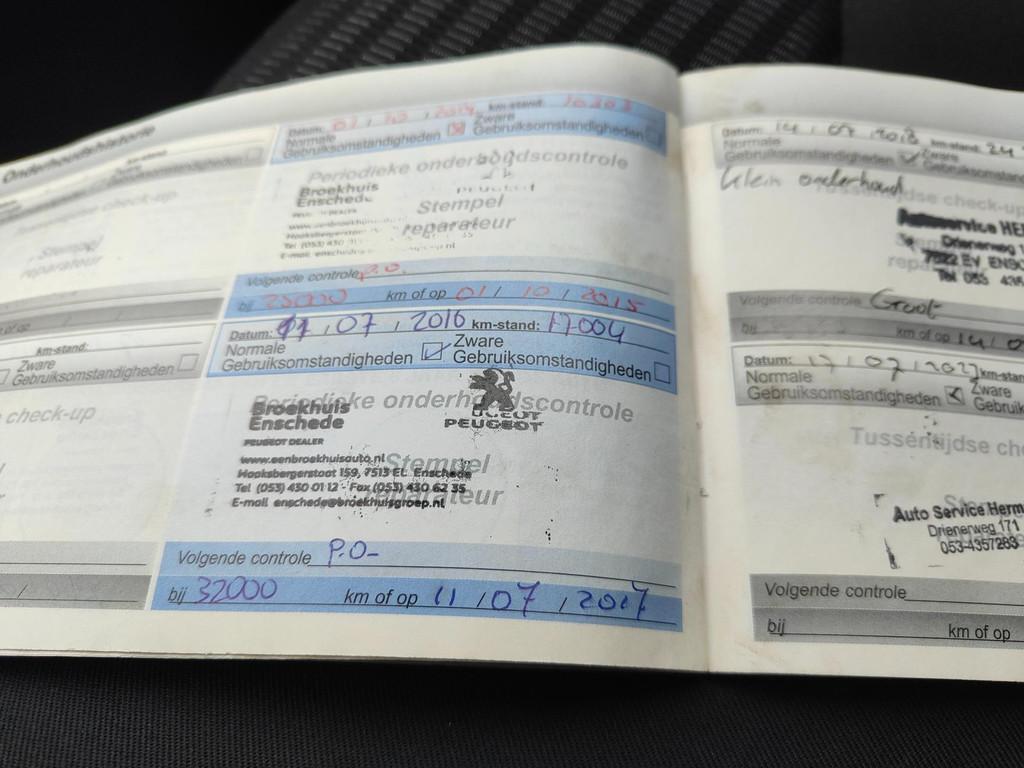 Onderhoudshistorie
km-stand:
Gebruiksomstandigheden
check-up
Stempel
reparateur
km of op
km-stand:
Zware
Gebruiksomstandigheden
check-up
Datum: 01 / 10 / 2014 km-stand: 10303
Normale
Gebruiksomstandigheden Zware
Gebruiksomstandigheden
Periodieke onderhoudscontrole
Broekhuis
Enschede
PEUGEOT
PEUGEOT DEALER
Stempel
reparateur
Volgende controle P.O.
bij 25000 km of op 01 / 10 / 2015
Datum: 11 / 07 / 2016 km-stand: 17004
Normale
Gebruiksomstandigheden Zware
Gebruiksomstandigheden
Periodieke onderhoudscontrole
Broekhuis
Enschede
PEUGEOT
PEUGEOT DEALER
www.eenbroekhuisauto.nl
Haaksbergerstraat 159, 7513 EL Enschede
Tel (053) 430 01 12 - Fax (053) 430 62 35
E-mail enschede@broekhuisgroep.nl
Stempel
reparateur
Volgende controle P.O-
bij 32000 km of op 11 / 07 / 2017
Datum: 14 / 07 / 2018 km-stand: 24
Normale
Gebruiksomstandigheden Zware
Gebruiksomstand
Klein onderhoud
Tussentijdse check-up
Autoservice HE
Drienerweg 1
7522 EV ENSC
Tel 053 435
Volgende controle Groot
bij km of op 14 / 0
Datum: 17 / 07 / 202 km-stan
Normale
Gebruiksomstandigheden Zware
Gebruik
Tussentijdse che
Auto Service Herm
Drienerweg 171
053-4357289
Volgende controle
bij km of op